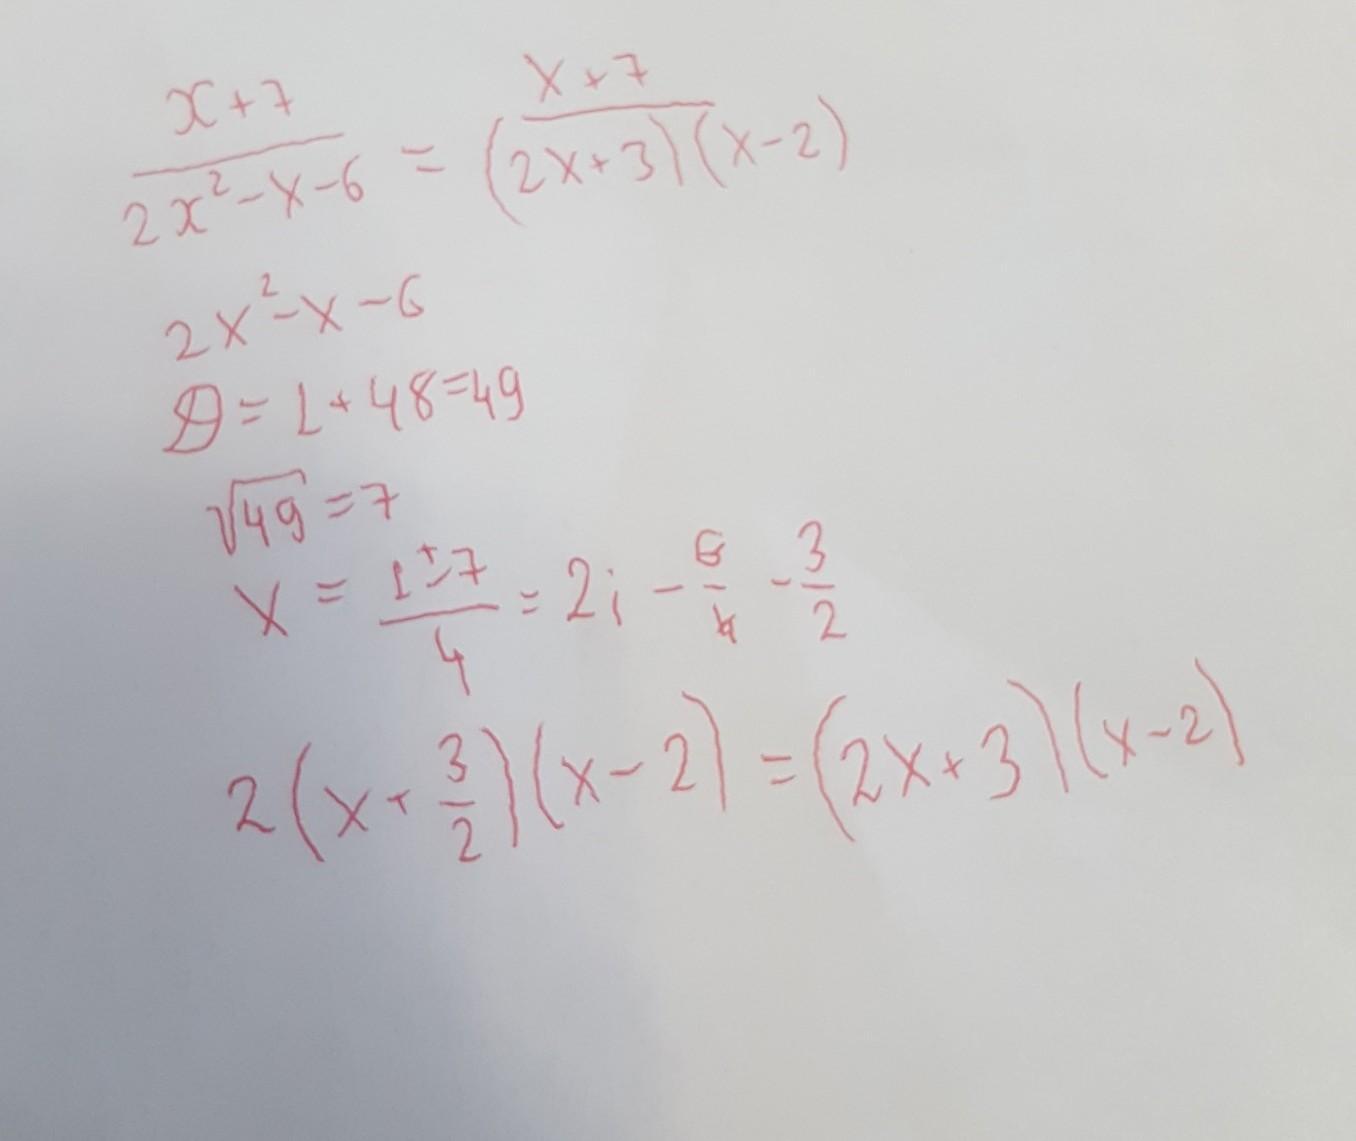 x+7/2x²-x-6 = x+7/(2x+3)(x-2)
2x²-x-6
D=1+48=49
√49=7
x=1±7/4=2; -6/4 -3/2
2(x+3/2)(x-2)=(2x+3)(x-2)